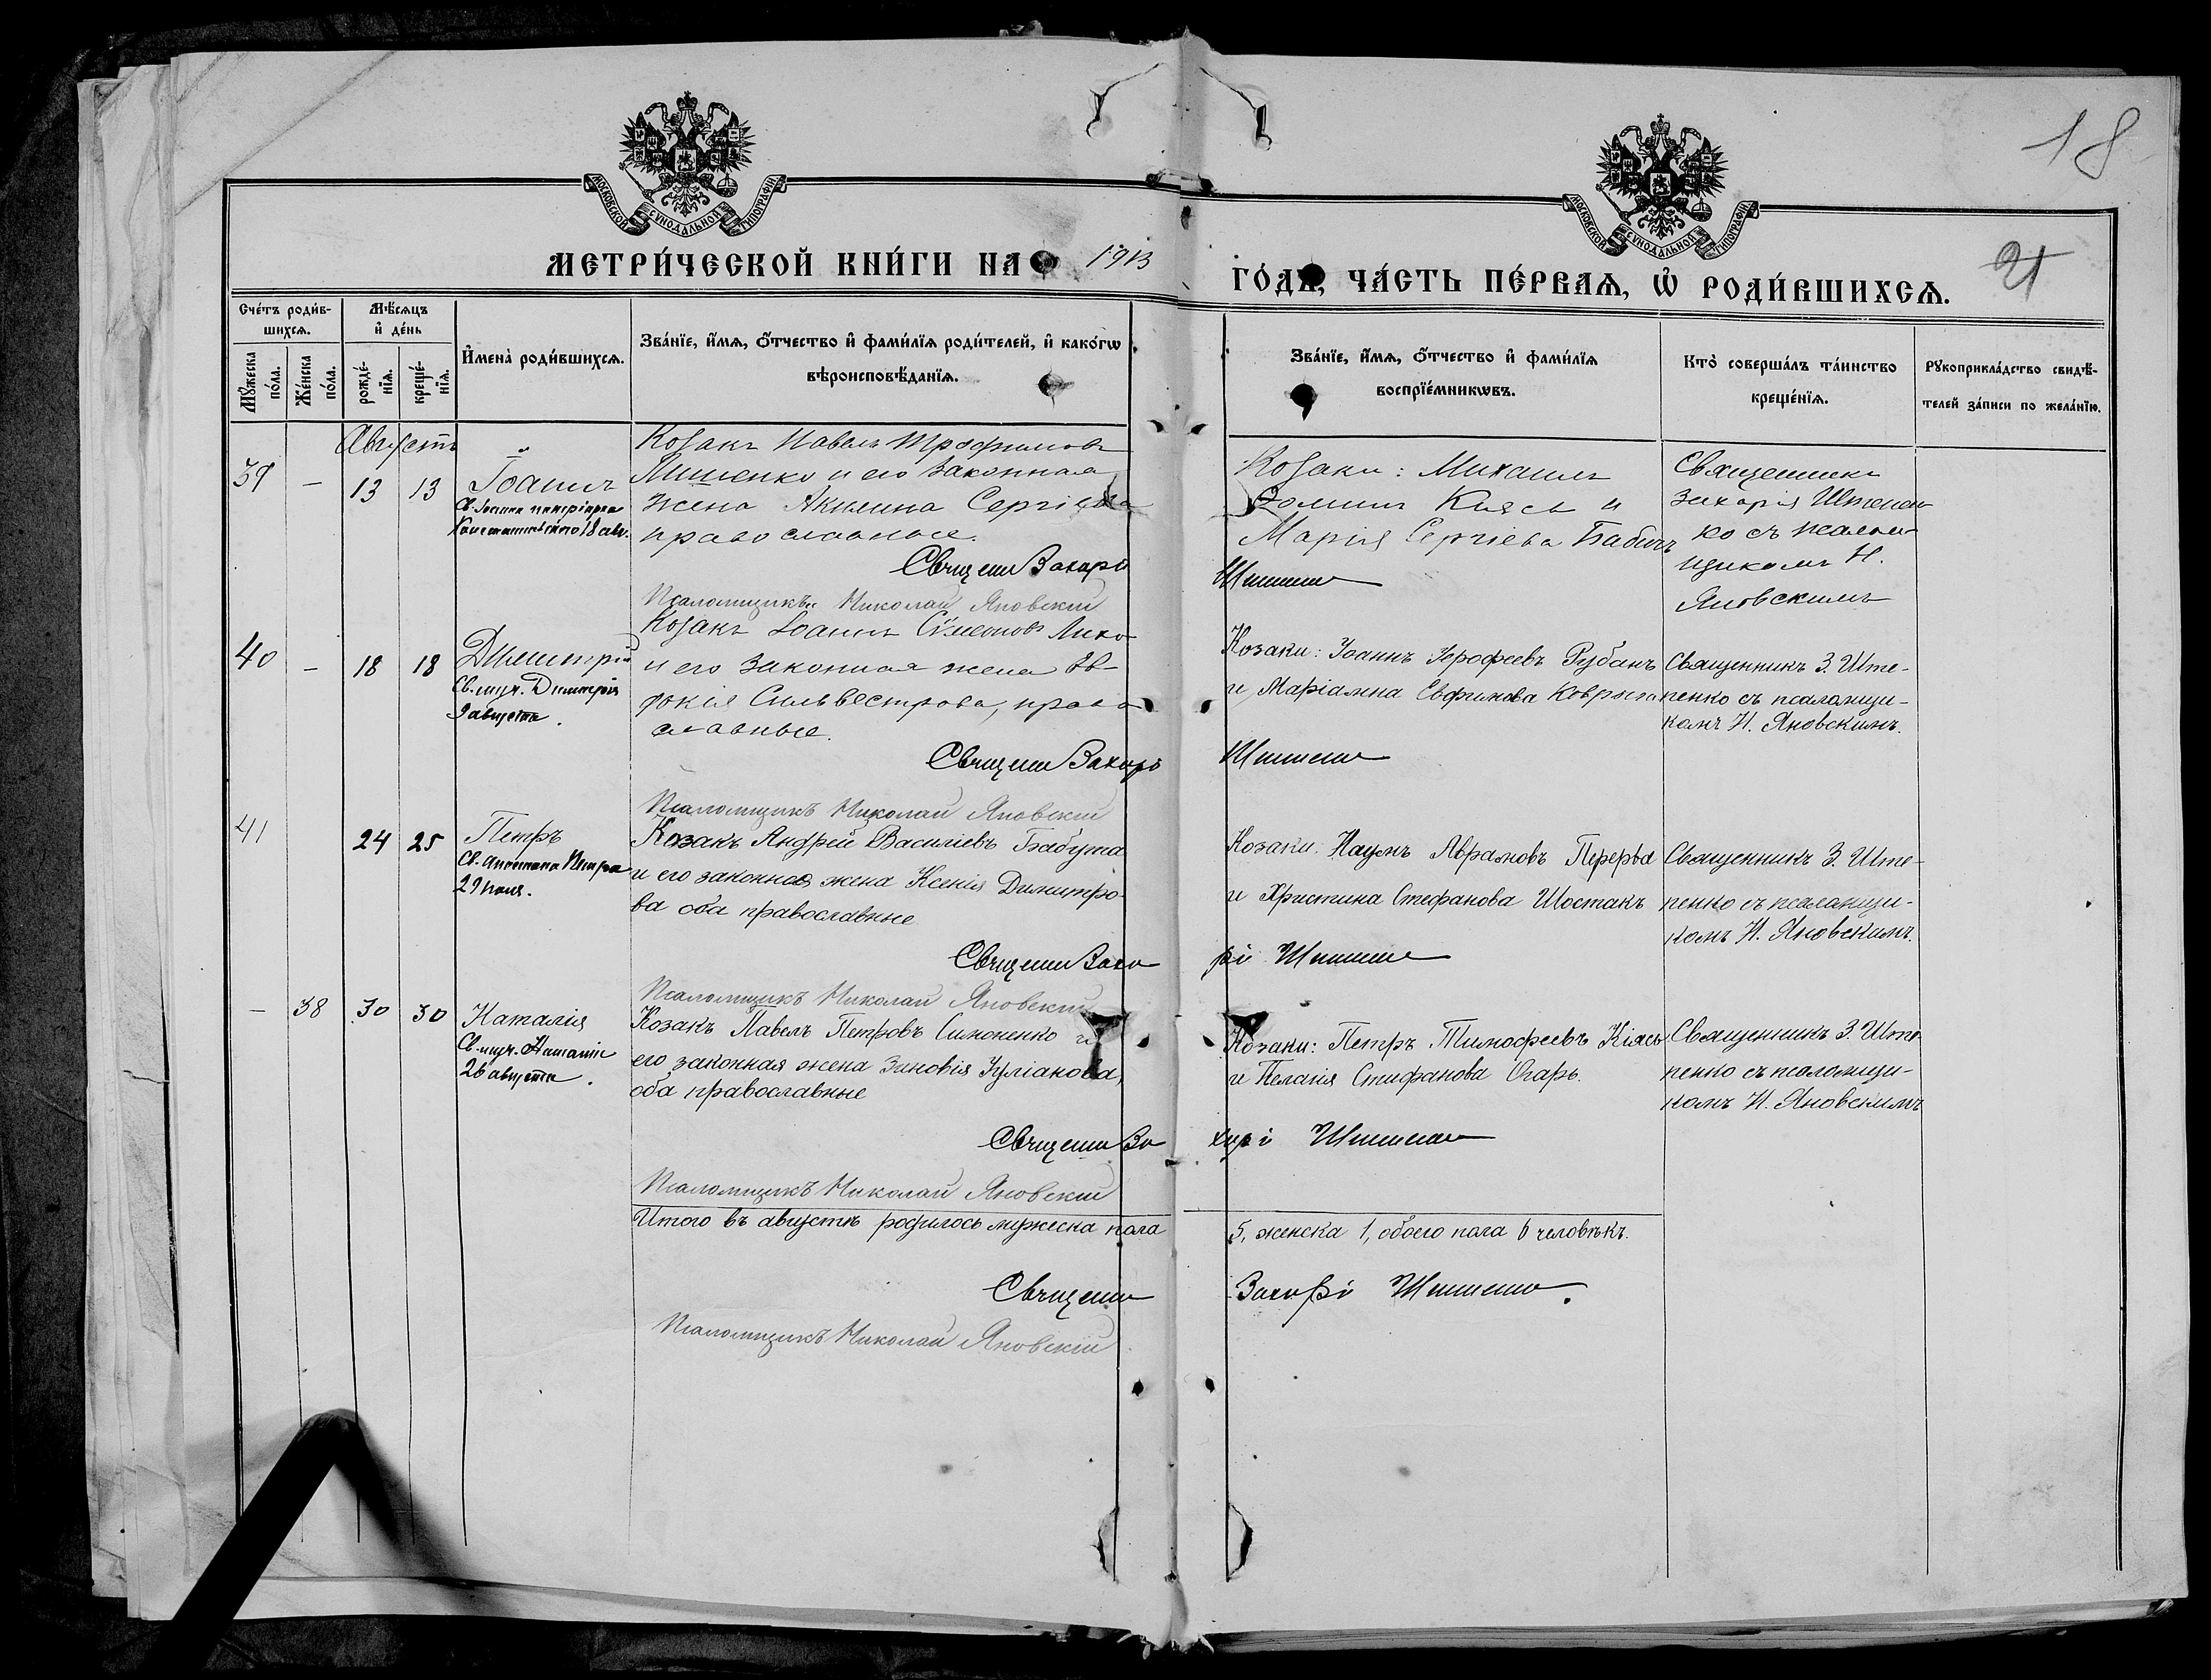 18
МОСКОВСКОЙ СѴНОДАЛЬНОЙ ТИПОГРАФІИ
МОСКОВСКОЙ СѴНОДАЛЬНОЙ ТИПОГРАФІИ
МЕТРИ́ЧЕСКОЙ КНИ́ГИ НА 1913
ГО́ДЪ, ЧА́СТЬ ПЕ́РВАѦ, Ѡ҆ РОДИ́ВШИХСѦ.
21
Сче́тъ роди́вшихсѧ.
Мꙋ́жеска по́ла.
Же́нска по́ла.
Мѣ́сѧцъ и҆ де́нь
рожде́нїѧ.
креще́нїѧ.
И҆мена̀ роди́вшихсѧ.
Зва́нїе, и҆́мѧ, ѻ҆́тчество и҆ фами́лїѧ роди́телей, и҆ како́гѡ
вѣроисповѣ́данїѧ.
Зва́нїе, и҆́мѧ, ѻ҆́тчество и҆ фами́лїѧ
воспрїе́мникѡвъ.
Кто̀ соверша́лъ та́инство
креще́нїѧ.
Рꙋкоприкла́дство свидѣ́-
телей за́писи по жела́нїю.
Августъ
39 – 13 13
Іоаннъ
Св. Іоанна патріарха
Константинопольскаго 18 авг.
Козакъ Павелъ Трофимовъ
и его законная
жена Акилина Сергіева
православные.
Священ Захарі
Псаломщикъ Николай Яновскій
Козаки: Михаилъ
Фоминъ Киясь и
Марія Сергіева Бабичъ
Священникъ
Захарія Штепен
ко съ псалом-
щикомъ Н.
Яновскимъ
40 – 18 18
Димитрій
Св. муч. Димитрія
9 августа.
Козакъ Іоаннъ Сѵмеоновъ
и его законная жена Ев-
докія Сильвестрова, право
славные.
Священ Захарі
Псаломщикъ Николай Яновскій
Козаки: Іоаннъ Іерофеевъ Рубанъ
и Маріамна Евфимова
Священникъ З. Ште-
пенко съ псаломщи-
комъ Н. Яновскимъ.
41 24 25
Петръ
Св. апостола Петра
29 іюня.
Козакъ Андрей Василіевъ Бабута
и его законная жена Ксенія Димитро-
ва оба православные
Священ Заха
рі Штепенко
Псаломщикъ Николай Яновскій
Козаки: Наумъ Аврамовъ Перерва
и Христина Стефанова Шостакъ
Священникъ З. Ште-
пенко съ псаломщи-
комъ Н. Яновскимъ.
– 38 30 30
Наталія
Св. муч. Наталіи
26 августа.
Козакъ Павелъ Петровъ Симоненко и
его законная жена Зиновія Іуліанова,
оба православные
Священ За
харі Штепенко
Псаломщикъ Николай Яновскій
Козаки: Петръ Тимофеевъ Кіясь
и Пелагія Стефанова Огарь.
Священникъ З. Ште-
пенко съ псаломщи-
комъ Н. Яновскимъ
Итого въ августѣ родилось мужеска пола
5, женска 1, обоего пола 6 человѣкъ.
Священ
Захарі Штепенко.
Псаломщикъ Николай Яновскій